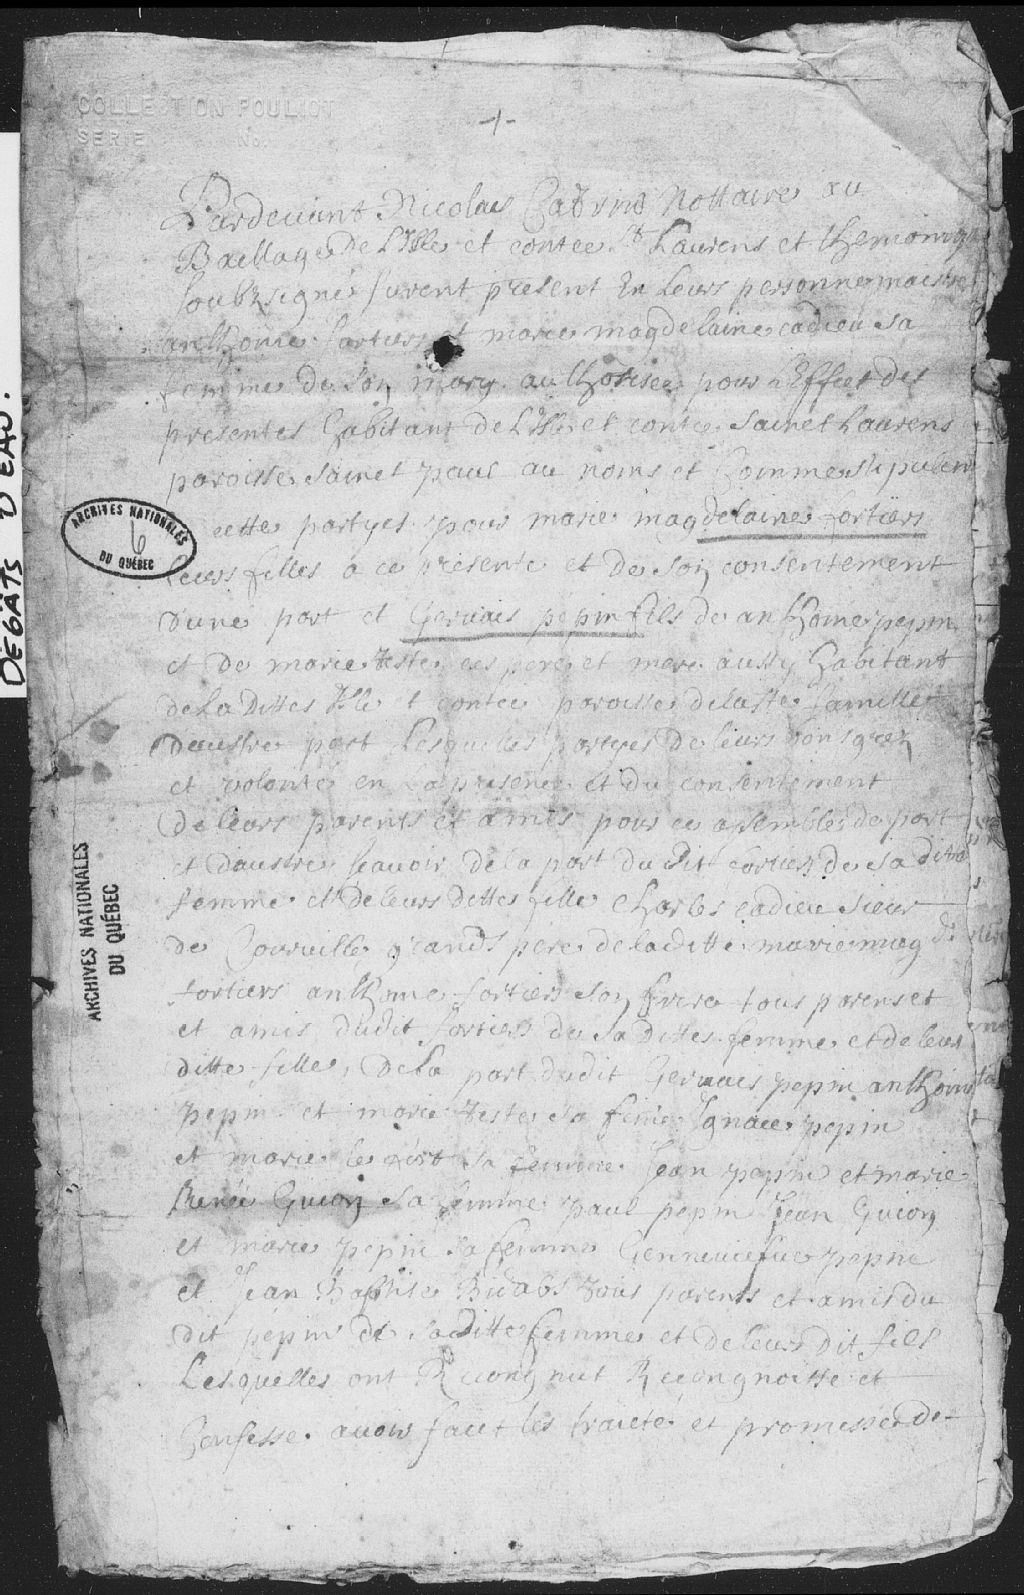 COLLECTION POULIOT
SERIE No.
DÉGÂTS D'EAU.
ARCHIVES NATIONALES
6
DU QUÉBEC
ARCHIVES NATIONALES
DU QUÉBEC
Pardevant Nicolas nottaire au
Baillage de L'Isle et contee St Laurens et
soubzsigné furent present En Leurs personne maistre
anthoine fortiers et marie magdelaine cadieu sa
femme de son mary authorisee pour L'Effect des
presentes habitant de L'Isle et contée Sainct Laurens
paroisse Sainct paul au noms et Comme stipulent
cette partyes pour marie magdelaine fortiers
Leurs filles a ce presente et de son consentement
d'une part et Gervais pepin fils de anthoine pepin
et de marie teste ces pere et mere aussy habitant
de La dittes Isle et contee paroisse de la Ste famille
d'austre part Lesquelles partyes de leurs bons grez
et volonté en La presence et du consentement
de leurs parents et amis pour ce asemblés de part
et d'austre scauoir de a part du dit fortiers de sa ditte
femme et de leurs dittes fille Charles cadieu sieur
de Courville grands pere de la ditte marie mag de
fortiers anthoine fortiers son frere tous parens et
et amis dudit fortiers de sa dittes femme et de leur
ditte fille, De La part dudit Gervais pepin anthoine
pepin et marie teste sa feme Ignace pepin
et marie sa femme Jean pepin et marie
Renée Guion sa femme paul pepin Jean Guion
et marie pepin sa femme Genneviefve pepin
et Jean Baptiste tous parents et amis du
dit pepin et sa ditte femme et de leur dit fils
Lesquelles ont Recongnut Recongnoisse et
Confesse avoir faict les traicté et promesse de